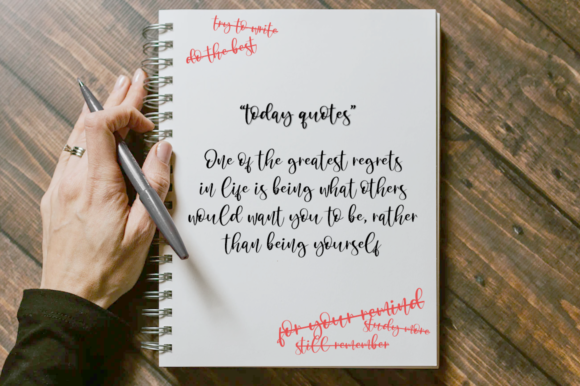 try to write
do the best
“today quotes”
One of the greatest regrets
in life is being what others
would want you to be, rather
than being yourself
for your remind
study more
still remember